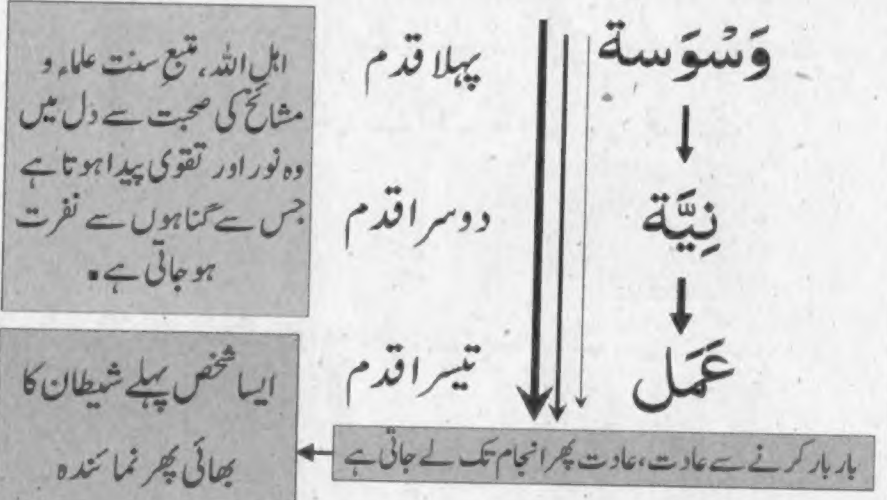 وَسْوَسة
پہلا قدم
نِیَّة
دوسرا قدم
عَمَل
تیسرا قدم
بار بار کرنے سے عادت، عادت پھر انجام تک لے جاتی ہے
اہل اللہ، متبعِ سنت علماء و
مشائخ کی صحبت سے دل میں
وہ نور اور تقوی پیدا ہوتا ہے
جس سے گناہوں سے نفرت
ہو جاتی ہے۔
ایسا شخص پہلے شیطان کا
بھائی پھر نمائندہ